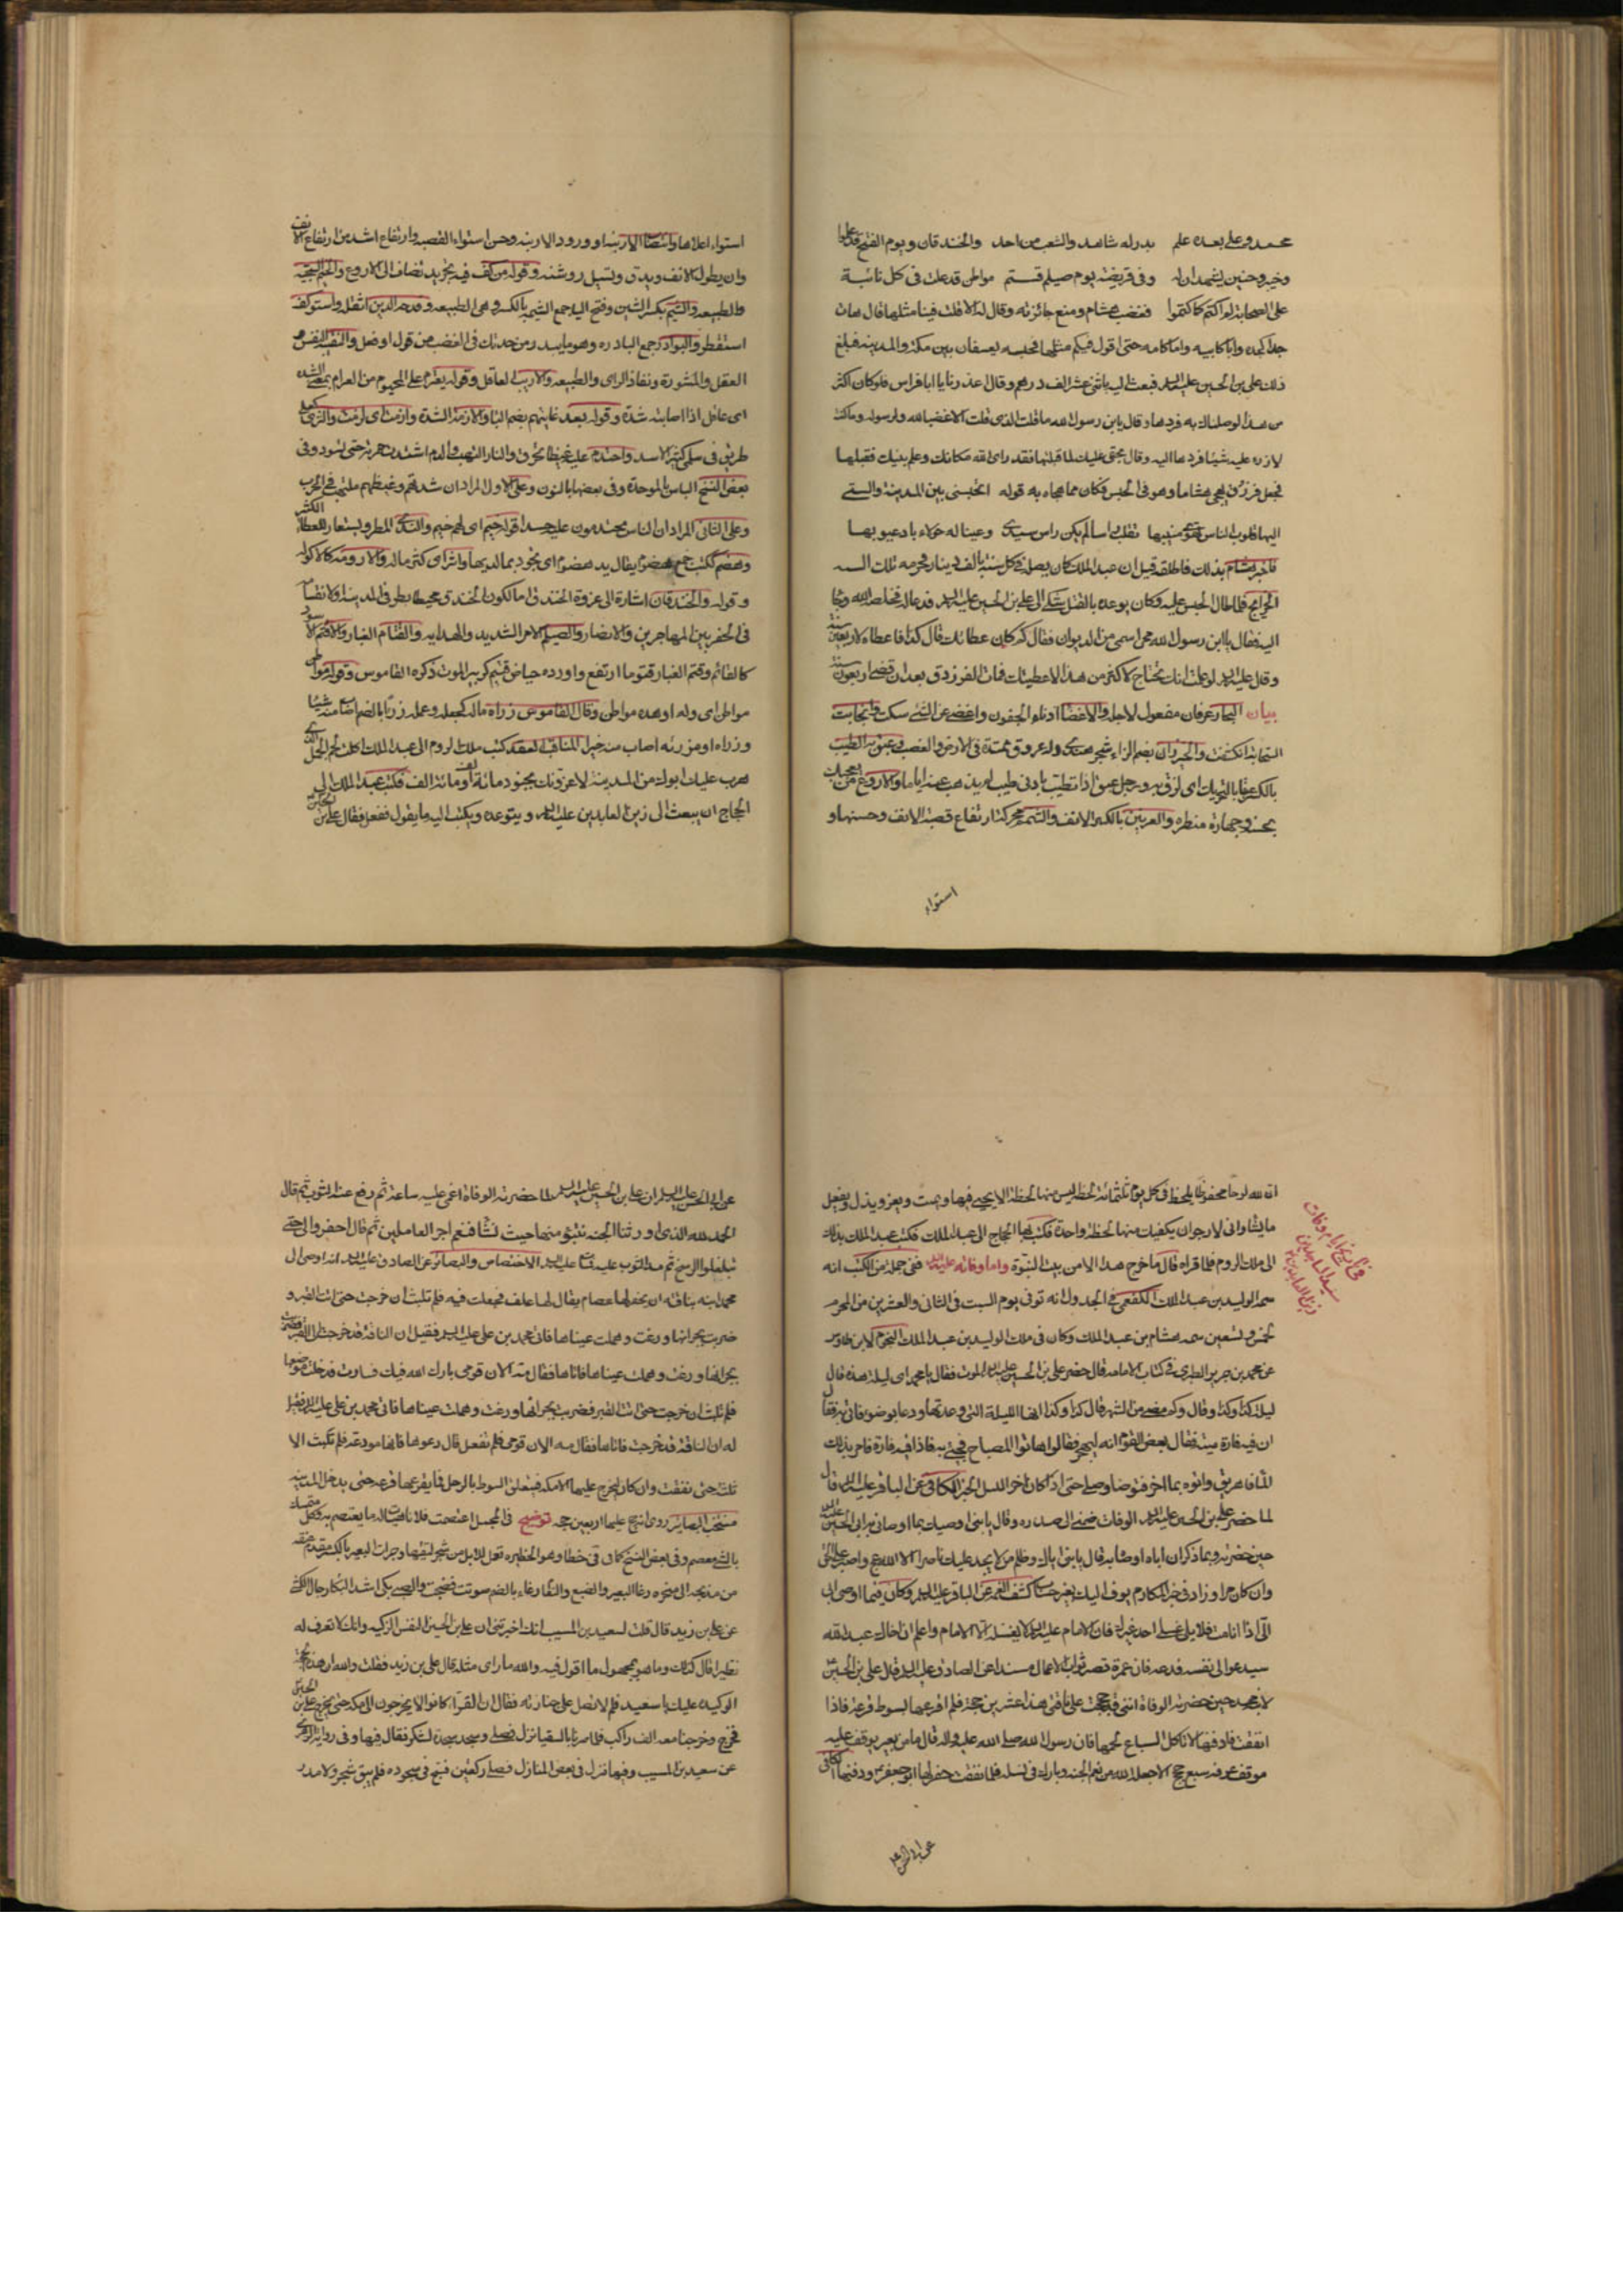 محمد وعلي بعده علم بدر له شاهد والشعب من احد والخندقان ويوم الفتح قد علموا
وخيبر وحنين يشهدان له وفي قريضة يوم صيلم قتم مواطن قد علت في كل نائبة
على الصحابة لم اكتم كما كتموا فغضب هشام ومنع جائزته وقال له الا قلت فينا مثلها قال هات
جدا كجده وابا كابيه واما كامه حتى اقول فيكم مثلها فحبسه بعسفان بين مكة والمدينة فبلغ
ذلك علي بن الحسين عليه السلام فبعث اليه باثني عشر الف درهم وقال اعذرنا يا ابا فراس فلو كان اكثر
من هذا لوصلناك به فردها وقال يابن رسول الله ما قلت الذي قلت الا غضبا لله ولرسوله وما كنت
لازره عليه شيئا فردها اليه وقال بحقي عليك لما قبلتها فقد راى الله مكانك وعلم نيتك فقبلها
فجعل فرزدق يهجو هشاما وهو في الحبس فكان مما هجاه به قوله اتحبسني بين المدينة والتي
اليها قلوب الناس تهوى منيبها تقلب راسا لم يكن راس سيد وعينا له حولاء باد عيوبها
فاخبر هشام بذلك فاطلقه قيل ان عبد الملك كان يصله في كل سنة بالف دينار فحرمه تلك السنة
الخرايج فلما طال الحبس عليه وكان يوعده بالقتل شكى الى علي بن الحسين عليه السلام فدعا له فخلصه الله وجاء
اليه فقال يا ابن رسول الله محى اسمي من الديوان فقال كم كان عطاؤك قال كذا فاعطاه لاربعين سنة
وقال عليه السلام لو علمت انك تحتاج لاكثر من هذا لاعطيتك فمات الفرزدق بعد ان قضى اربعون سنة
بيان البحار عرفان مفعول لاجله والاغضاء ادناء الجفون واغضى عن الشيء سكت وانجابت
السحابة انكشفت والخيزران بضم الزاء شجر هندي وله عروق ممتدة في الارض والقصب وعبق به الطيب
بالكسر عبقا بالتحريك اى لزق به ورجل عبق اذا تطيب بادنى طيب لم يذهب عنه اياما والاروع من يعجبك
بحسنه وجهارة منظره والعرنين بالكسر الانف والشمم محركة ارتفاع قصبة الانف وحسنها و
استواء
استواء اعلاها وانتصاب الارنبة او ورود الارنبة وحسن استواء القصبة وارتفاع اشد من ارتفاع الانف
وان يطول الانف ويدق وتسيل روثته وقوله من كف فيه تجريد تضاف الى الاروع والخيم السجية
والطبيعة والشيم بكسر الشين وفتح الياء جمع الشيمة بالكسر وهى الطبيعة وفدحه الدين اثقله واستوكف
استقطر والبوادر جمع البادرة وهو ما يبدر من حدتك في الغضب من قول او فعل والنقيبة النفس و
العقل والمشورة ونفاذ الراى والطبيعة والاريب العاقل وقوله يعترم على المجهوم من العرام بمعنى الشدة
اى عاقل اذا اصابته شدة وقوله بعد غايتهم بضم الباء والازمة الشدة وازمت اى لزمت والشرى كعلى
طريق في سلمى كثير الاسد واحتدم عليه غيظا تحرق والنار التهب والدم اشتدت حمرته حتى تسود وفى
بعض النسخ الباس بالموحدة وفى بعضها بالنون وعلى الاول المراد ان شدتهم وغيظهم ملتهب في الحرب
وعلى الثانى المراد ان الناس محتدمون عليهم حسدا قوله خيم اى لهم خيم والندى المطر ويستعار للعطاء الكثير
وهضم ككتب جمع هضوم يقال يد هضوم اى تجود بما لديها واثرى اى كثر ماله والارومة كالاكولة
وقوله والخندقان اشارة الى غزوة الخندق اما لكون الخندق محيطا بطرفى المدينة او لانقسامه
فى الحفر بين المهاجرين والانصار والصيلم الامر الشديد والداهية والقتام الغبار والاقتم الاسود
كالقاتم وقتم الغبار قتوما ارتفع واورده حياض قتيم كزبير الموت ذكره القاموس وقوله
مواطن اى وله او هذه مواطن وقال القاموس رزاه ماله كجعله وعمله رزءا بالضم اصاب منه شيئا
ورزاه رزءا ومرزئة اصاب منه خيرا المناقب العقد كتب ملك الروم الى عبد الملك اكلت لحم الجمل الذي
هرب عليك ابوك من المدينة لاغزونك بجنود مائة الف ومائة الف فكتب عبد الملك الى
الحجاج ان يبعث الى زين العابدين عليه السلام ويتوعده ويكتب اليه ما يقول ففعل فقال علي بن الحسين
ان لله لوحا محفوظا يلحظه في كل يوم ثلثمائة لحظة ليس منها لحظة الا يحيى فيها ويميت ويعز ويذل ويفعل
ما يشاء وانى لارجو ان يكفيك منها لحظة واحدة فكتب بها الحجاج الى عبد الملك فكتب عبد الملك بذلك
الى ملك الروم فلما قراه قال ما خرج هذا الا من بيت النبوة واما وفاته عليه السلام ففى جملة من الكتب انه
سمه الوليد بن عبد الملك الكفعمي في الجدول انه توفى يوم السبت فى الثانى والعشرين من المحرم
لخمس وتسعين سمه هشام بن عبد الملك وكان فى ملك الوليد بن عبد الملك النجوم لابن طاوس
عن محمد بن جرير الطبرى في كتاب الامامة قال حضر علي بن الحسين عليه السلام الموت فقال يا محمد اى ليلة هذه قال
ليلة كذا وكذا وقال وكم مضى من الشهر قال كذا وكذا انها الليلة التي وعدتها ودعا بوضوء فاتى به فقال
ان فيه فارة ميتة فقال بعض القوم انه ليهجر فقال هاتوا المصباح فجئ به فاذا فيه فارة فامر بذلك
الماء فاهريق واتوه بماء اخر فتوضا وصلى حتى اذا كان اخر الليل الخبر الكافى عن الباقر عليه السلام قال
لما حضر علي بن الحسين عليه السلام الوفاة ضمنى الى صدره وقال يا بنى اوصيك بما اوصانى به ابى الحسين عليه السلام
حين حضرته وبما ذكر ان اباه اوصاه به قال يا بنى اياك وظلم من لا يجد عليك ناصرا الا الله عج واصبر على الحق
وان كان مرا وزاد في خبر المكارم يوف اليك بغير حساب كشف الغمة عن الباقر عليه السلام وكان فيما اوصى ابى
الى اذا انا مت فلا يلى غسلى احد غيرك فان الامام عليه السلام لا يغسله الا الامام واعلم ان اخاك عبد الله
سيدعو الى نفسه فدعه فان عمره قصير ثواب الاعمال مسندا عن الصادق عليه السلام قال علي بن الحسين ع
لابنه محمد حين حضرته الوفاة اننى قد حججت على ناقتى هذه عشرين حجة فلم اقرعها بسوط قرعة فاذا
نفقت فادفنها لا تاكل السباع لحمها فان رسول الله صلى الله عليه واله قال ما من بعير يوقف عليه
موقف عرفة سبع حجج الا جعله الله من نعم الجنة وبارك فى نسله فلما نفقت حفر لها ابو جعفر ع ودفنها الكافى
عن ابى الحسن ع
في تاريخ ايام وفات
سيد الساجدين
زين العابدين
عن ابى الحسن عليه السلام ان علي بن الحسين عليه السلام لما حضرته الوفاة اغمى عليه ساعة ثم رفع عنه الثوب ثم قال
الحمد لله الذى اورثنا الجنة نتبوء منها حيث نشاء فنعم اجر العاملين ثم قال احفروا لى حتى
تبلغوا الرسخ ثم مد الثوب عليه فمات عليه السلام الاختصاص والبصائر عن الصادق عليه السلام انه اوصى الى
محمد ابنه بناقة ان يحفر لها عصام يقال لها علف فجعلت فيه فلم تلبث ان خرجت حتى اتت القبر و
ضربت بجرانها ورغت وهملت عيناها فاتى محمد بن علي عليه السلام فقيل ان الناقة قد خرجت الى القبر فضربت
بجرانها ورغت وهملت عيناها فاتاها فقال مه الان قومى بارك الله فيك فسارت فدخلت موضعها
فلم تلبث ان خرجت حتى اتت القبر فضربت بجرانها ورغت وهملت عيناها فاتى محمد بن علي عليه السلام فقيل
له ان الناقة قد خرجت فاتاها فقال مه الان قومى فلم تفعل قال دعوها فانها مودعة فلم تلبث الا
ثلثة حتى نفقت وان كان ليخرج عليها الى مكة فيتعلق السوط بالرحل فما يقرعها قرعة حتى يدخل المدينة
منتخب البصائر روى انه حج عليها اربعين حجة توضيح فى المجمل اعتصمت فلانا هيات له ما يعتصم به وكل متمسك
بالشئ معصم وفى بعض النسخ كما فى خطام وهو الحظيرة تعمل للابل من شجر لتقيها وجران البعير بالكسر مقدم عنقه
من مذبحه الى منخره رغا البعير والضبع والنعام رغاء بالضم صوتت فضجت والصبى بكى اشد البكاء رجال الكشى
عن علي بن زيد قال قلت لسعيد بن المسيب انك اخبرتنى ان علي بن الحسين النفس الزكية وانك لا تعرف له
نظيرا قال كذلك وما هو مجهول ما اقول فيه والله ما راى مثله قال علي بن زيد فقلت والله ان هذه الحجة
الوكيدة عليك يا سعيد فلم لم تصل على جنازته فقال ان القراء كانوا لا يخرجون الى مكة حتى يخرج علي بن الحسين
فخرج وخرجنا معه الف راكب فلما صرنا بالسقيا نزل فصلى وسجد سجدة الشكر فقال فيها وفى رواية الزهري
عن سعيد بن المسيب وفيها نزل فى بعض المنازل فصلى ركعتين فسبح فى سجوده فلم يبق شجر ولا مدر